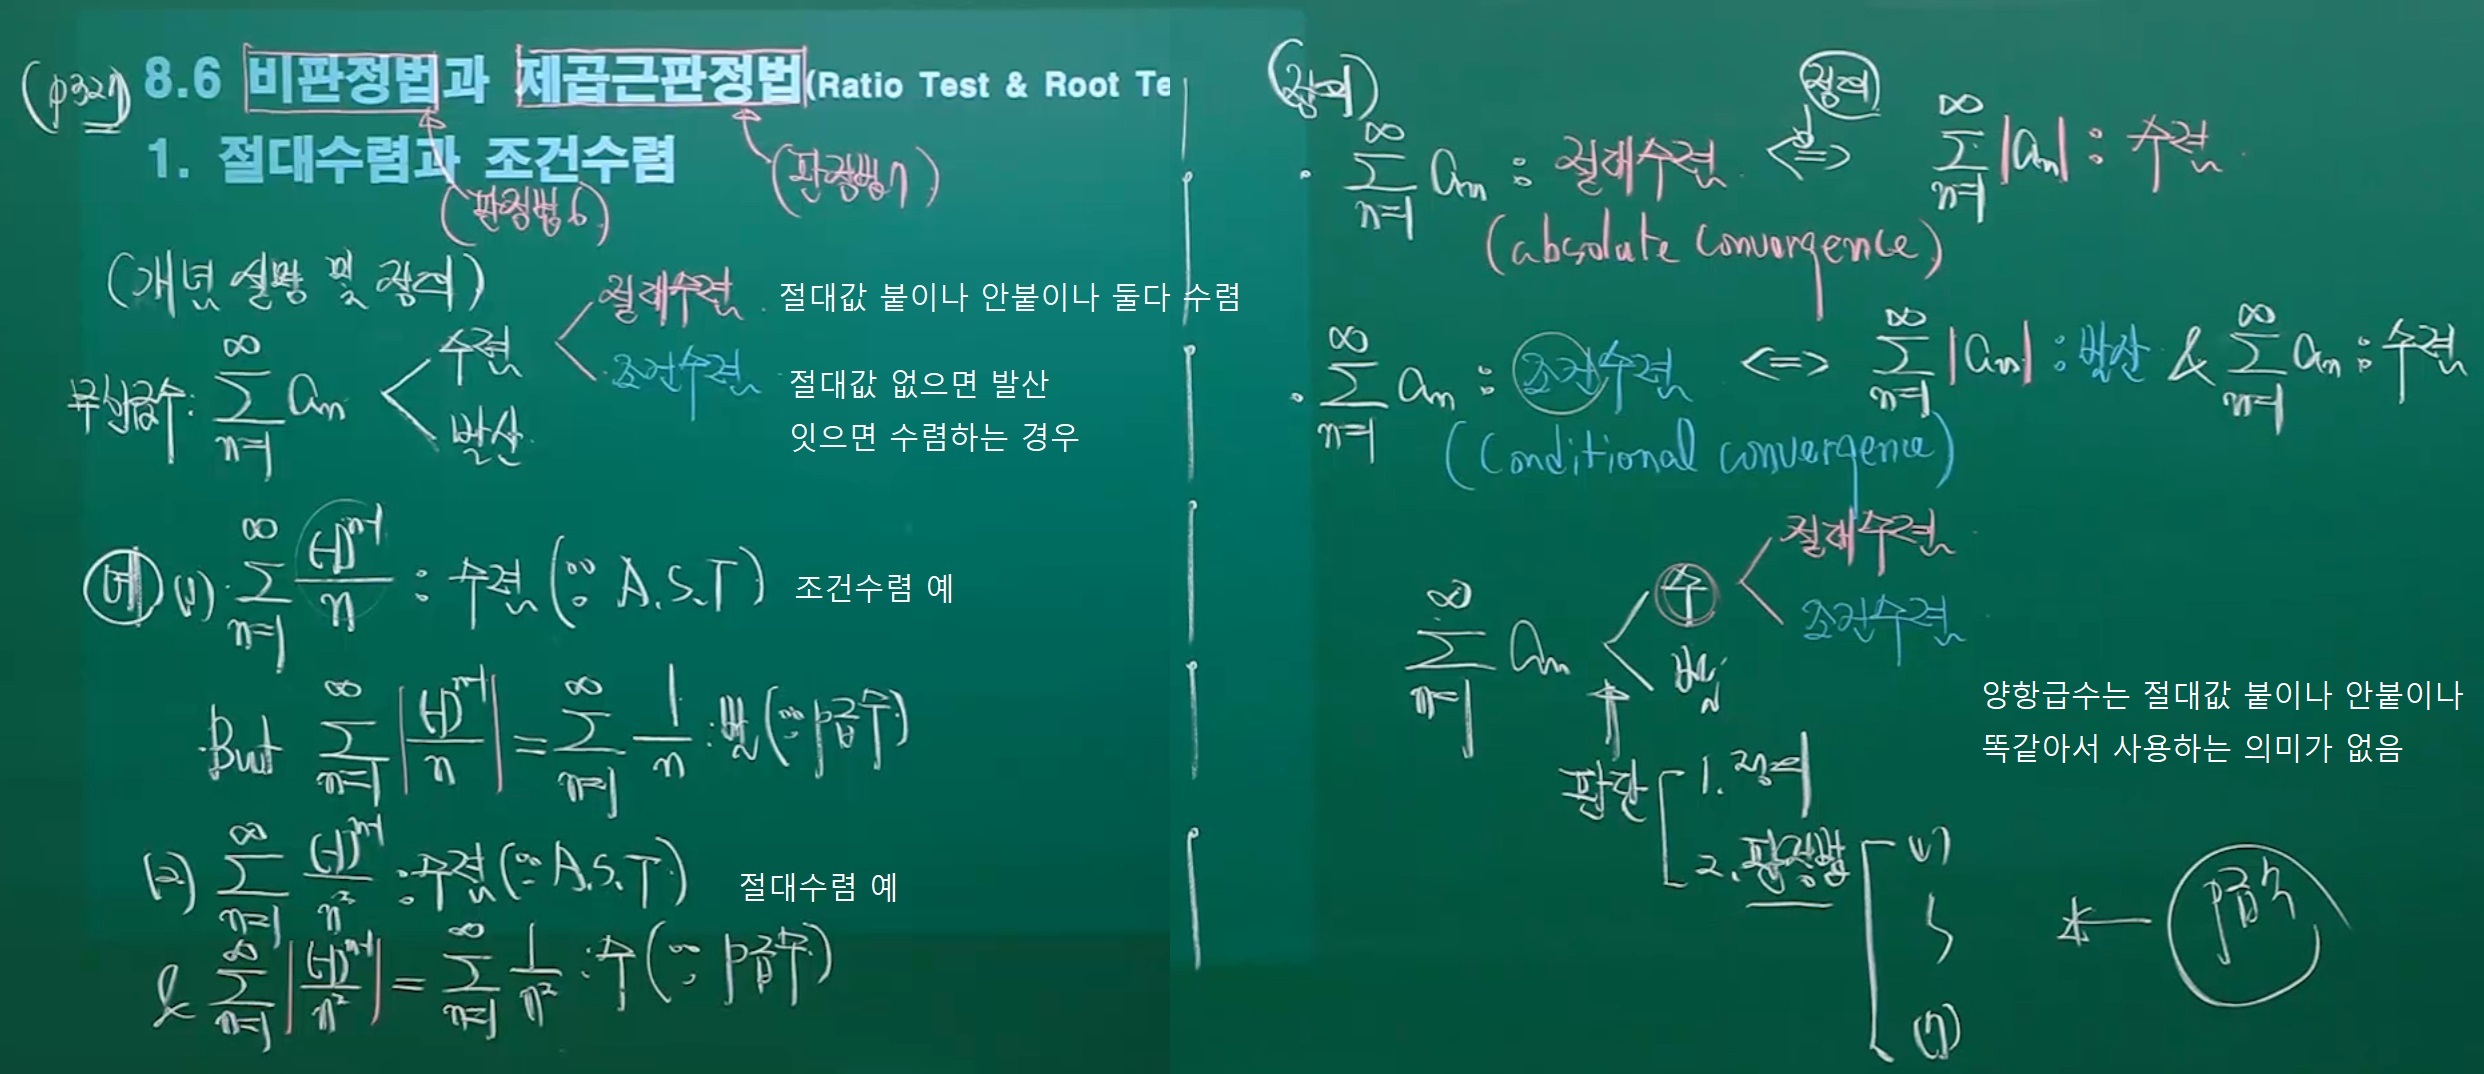 (p327) 8.6 비판정법과 제곱근판정법(Ratio Test & Root Te
1. 절대수렴과 조건수렴
(판정법6)
(판정법7)
(개념 설명 및 정의)
무한급수: ∞∑n=1 an < 수렴 < 절대수렴. 절대값 붙이나 안붙이나 둘다 수렴
조건수렴. 절대값 없으면 발산
잇으면 수렴하는 경우
발산.
예 (1) ∞∑n=1 (-1)^n-1/n : 수렴 (∵ A.S.T) 조건수렴 예
But ∞∑n=1 |(-1)^n-1/n| = ∞∑n=1 1/n : 발 (∵ p급수)
(2) ∞∑n=1 (-1)^n-1/n² : 수렴 (∵ A.S.T) 절대수렴 예
& ∞∑n=1 |(-1)^n-1/n²| = ∞∑n=1 1/n² : 수 (∵ p급수)
(정의)
정의
· ∞∑n=1 an : 절대수렴. <=> ∞∑n=1 |an| : 수렴.
(absolute convergence)
· ∞∑n=1 an : 조건수렴. <=> ∞∑n=1 |an| : 발산. & ∞∑n=1 an : 수렴
(Conditional convergence)
∞∑n=1 an < 수 < 절대수렴.
조건수렴.
발
양항급수는 절대값 붙이나 안붙이나
똑같아서 사용하는 의미가 없음
판단 1. 정의
2. 판정법 (1)
(7)
p급수